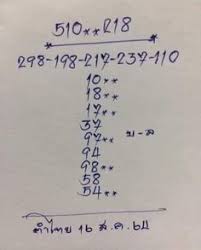 510**218
298-198-217-237-110
10**
18**
17**
37
97** บ-ล
94
98**
58
54**
คำไทย 16 ส.ค. 64